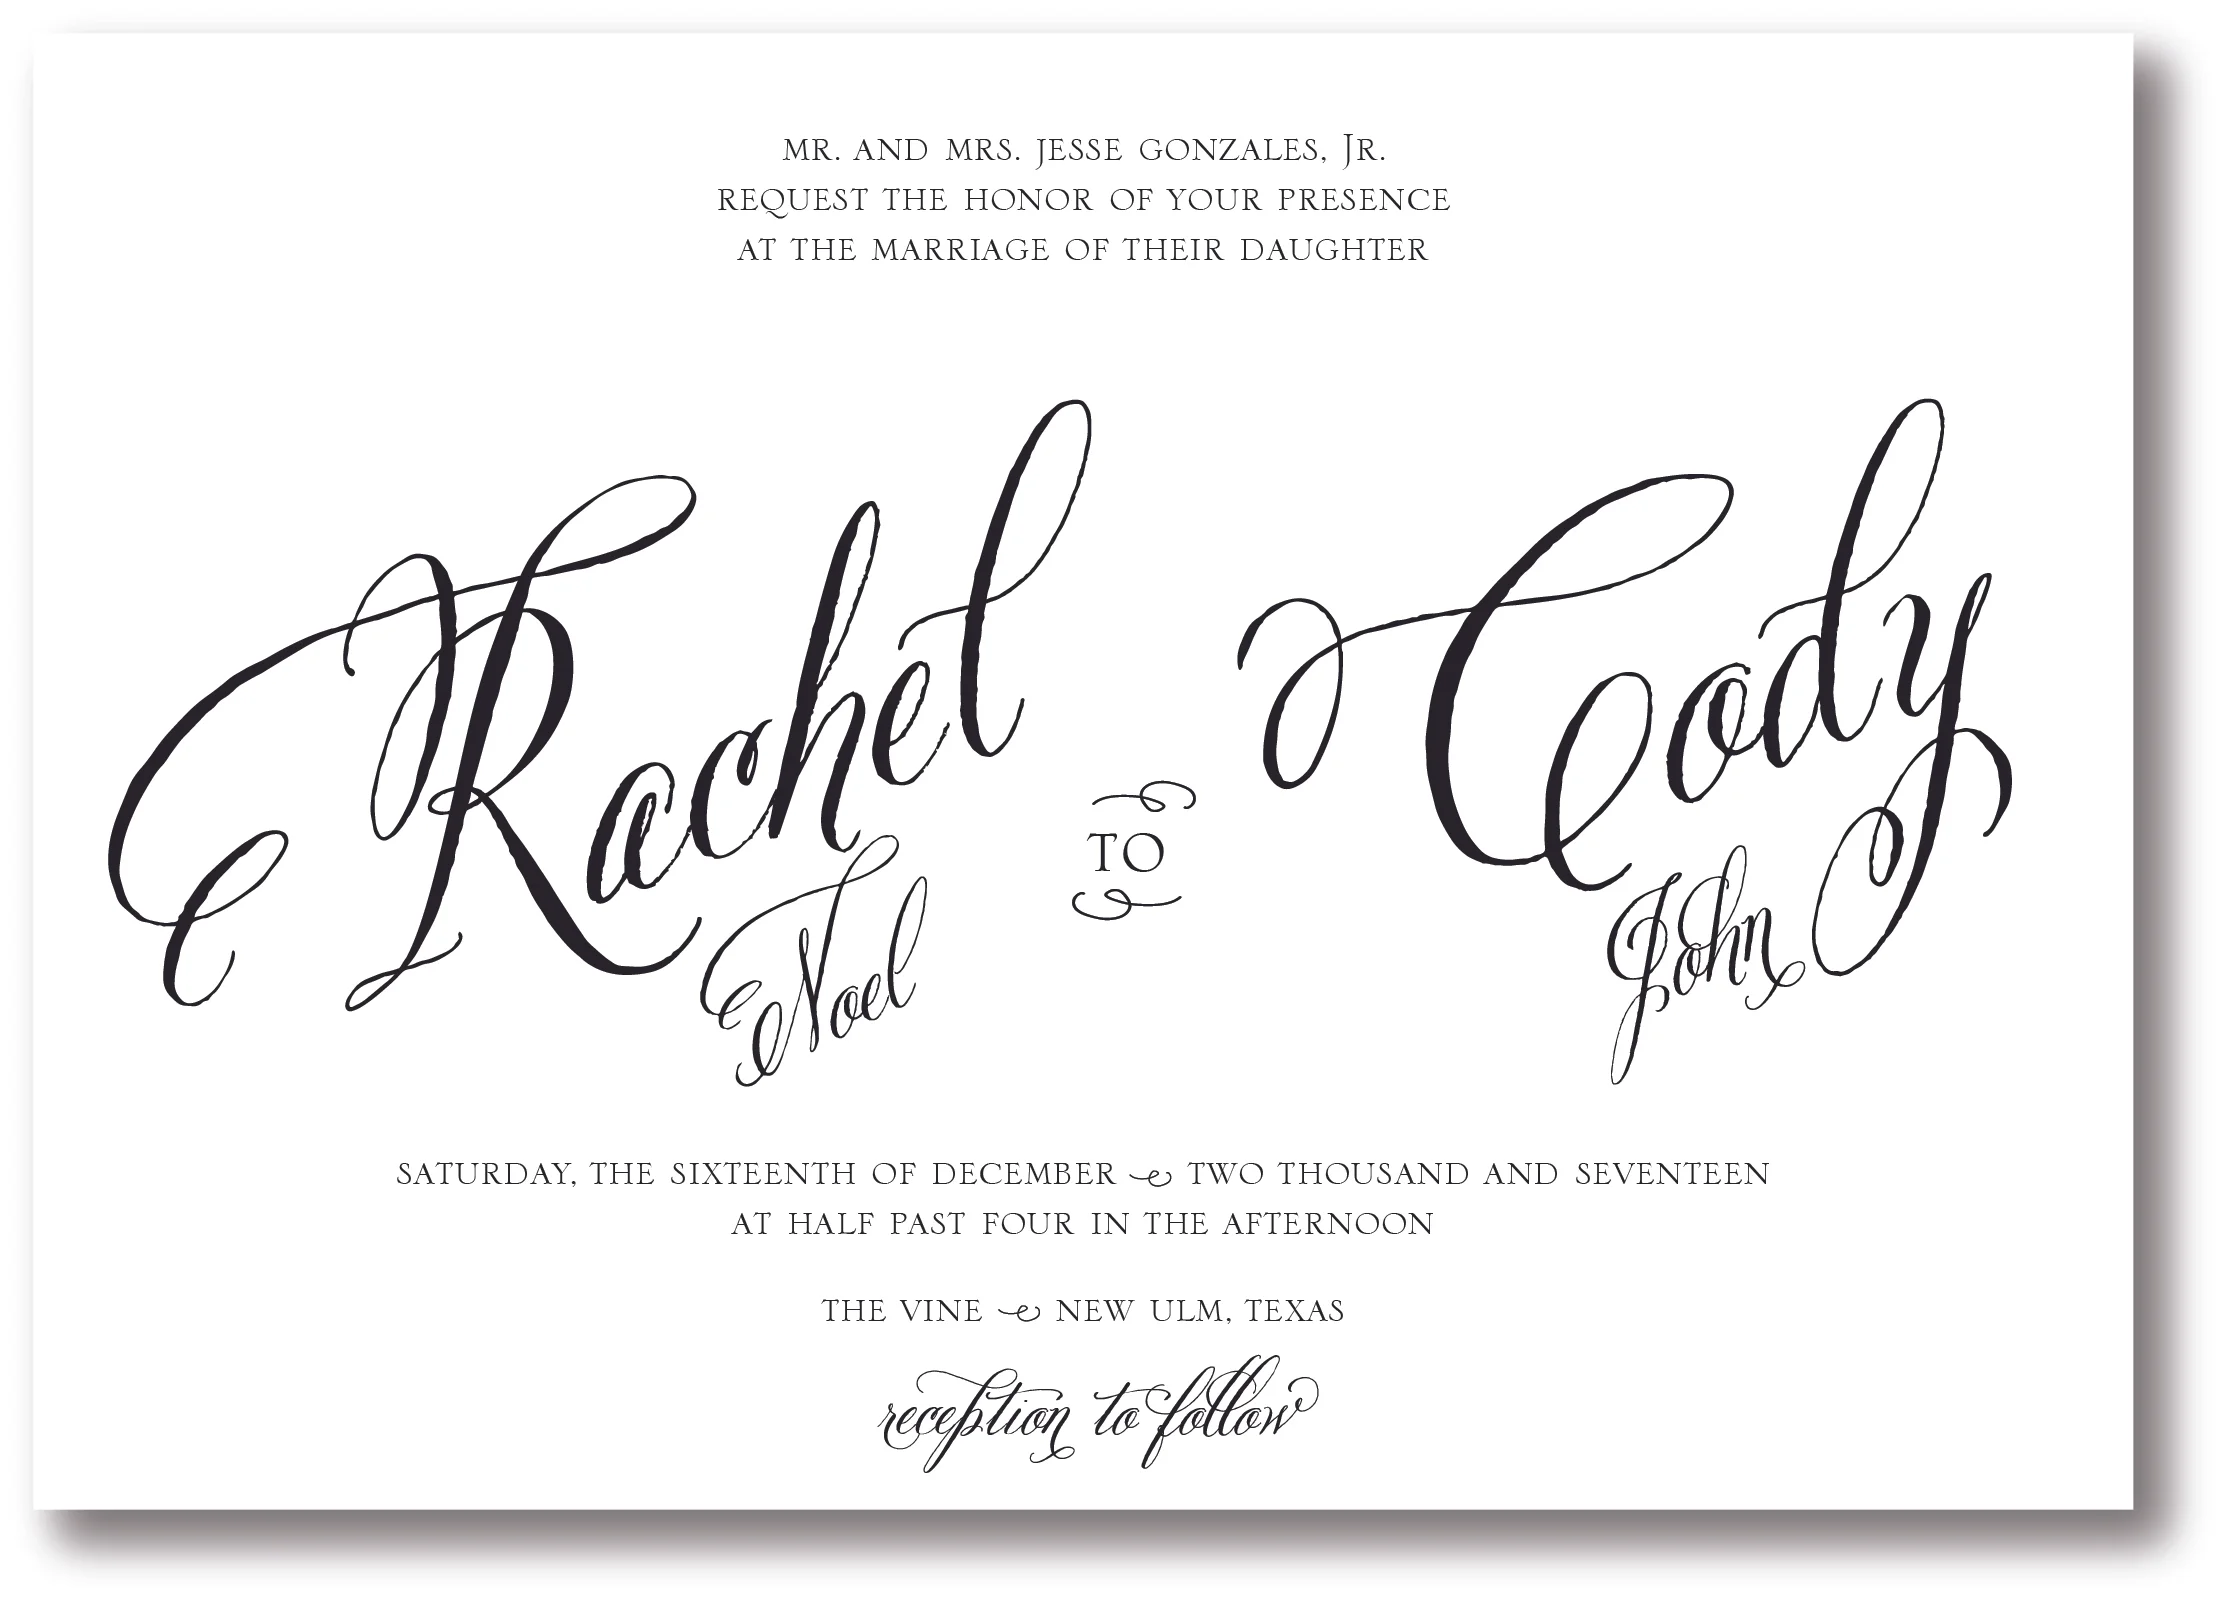 MR. AND MRS. JESSE GONZALES, JR.
REQUEST THE HONOR OF YOUR PRESENCE
AT THE MARRIAGE OF THEIR DAUGHTER
Rachel
Noel
TO
Cody
John
SATURDAY, THE SIXTEENTH OF DECEMBER TWO THOUSAND AND SEVENTEEN
AT HALF PAST FOUR IN THE AFTERNOON
THE VINE NEW ULM, TEXAS
reception to follow